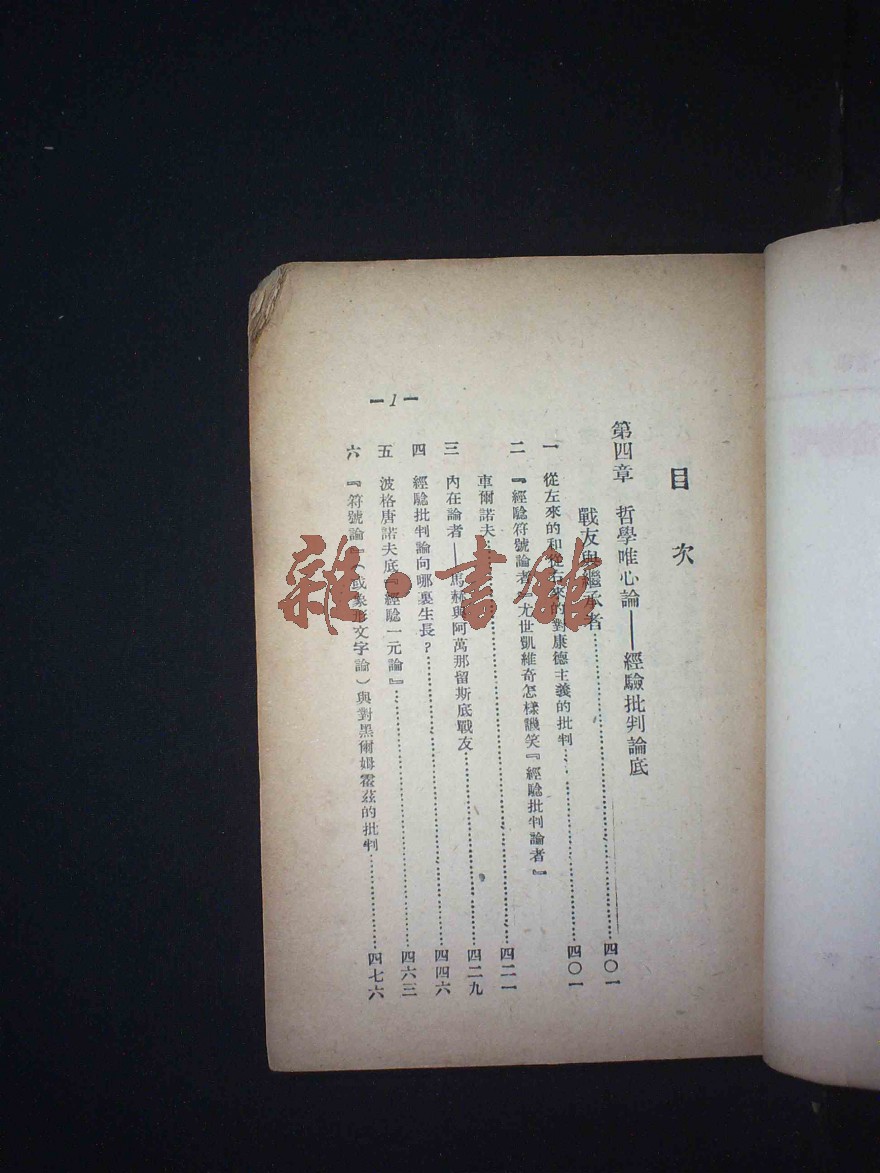 目次
第四章 哲學唯心論——經驗批判論底
戰友與繼承者……四〇一
一 從左來的和從右來的對康德主義的批判……四〇一
二 『經驗符號論者』尤世凱維奇怎樣譏笑『經驗批判論者』
車爾諾夫……四二一
三 內在論者——馬赫與阿萬那留斯底戰友……四二九
四 經驗批判論向哪裏生長？……四四六
五 波格唐諾夫底『經驗一元論』……四六三
六 『符號論』（或象形文字論）與對黑爾姆霍茲的批判……四七六
—1—
雜·書館